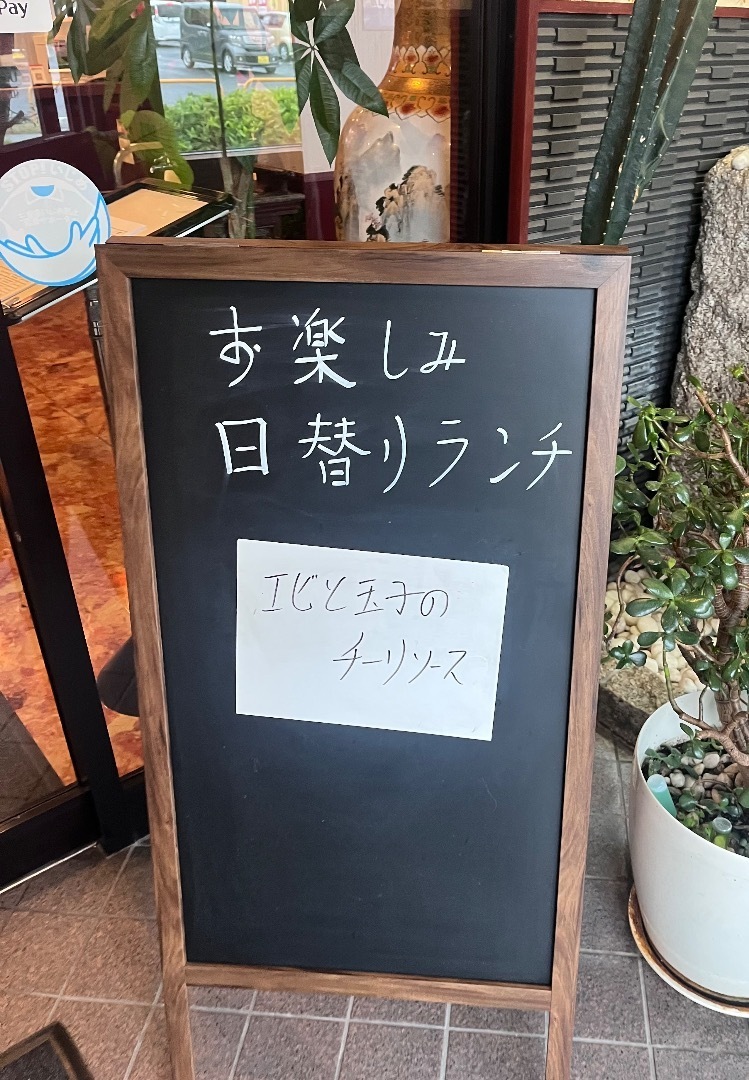 Pay
お楽しみ
日替りランチ
エビと玉子の
チーリソース